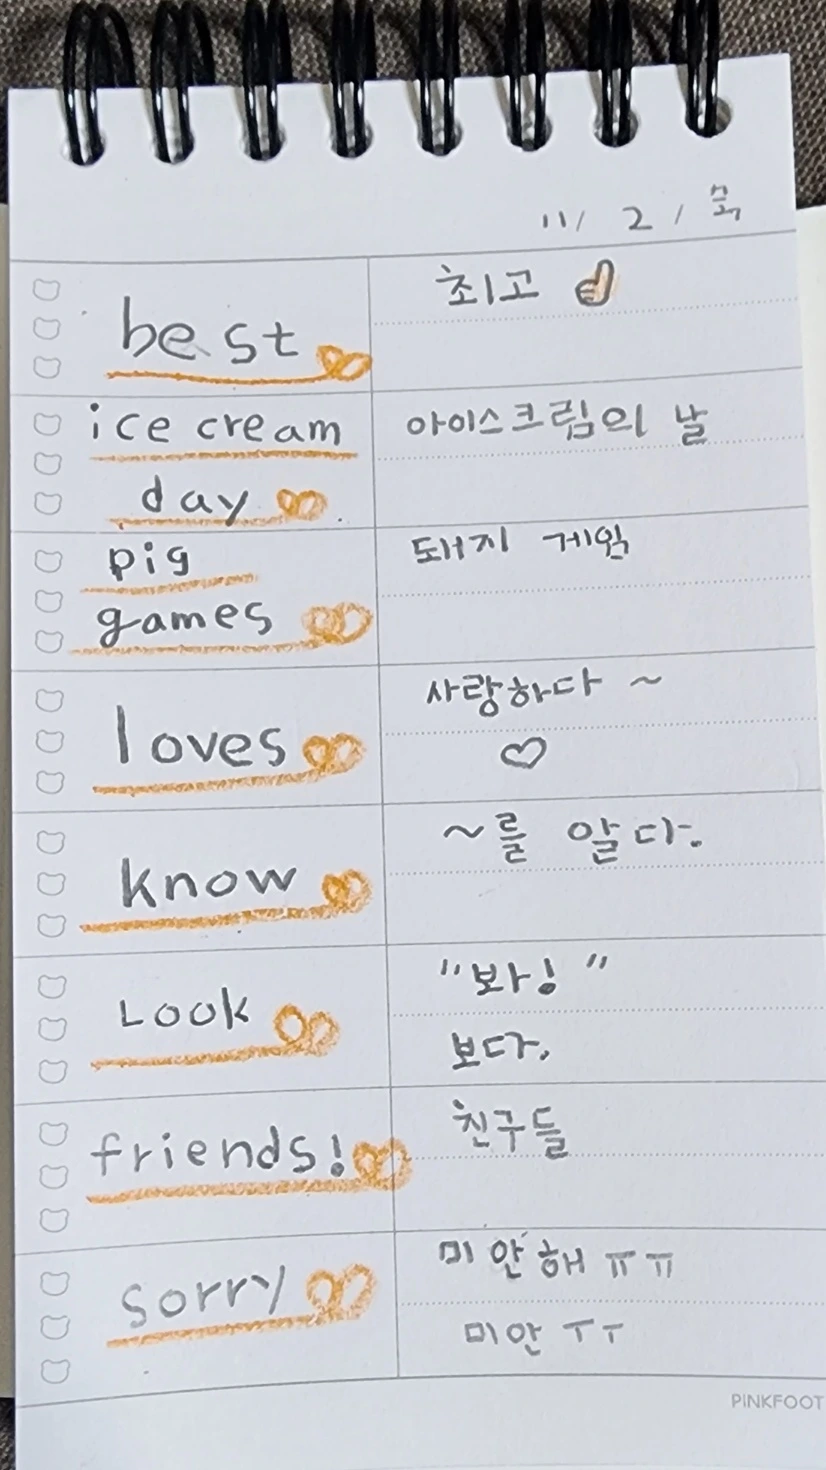 11/ 2 / 목
best
최고
ice cream
day
아이스크림의 날
pig
games
돼지 게임
loves
사랑하다 ~
know
~를 알다.
Look
"봐!"
보다.
friends!
친구들
sorry
미안해 ㅠㅠ
미안 ㅜㅜ
PINKFOOT